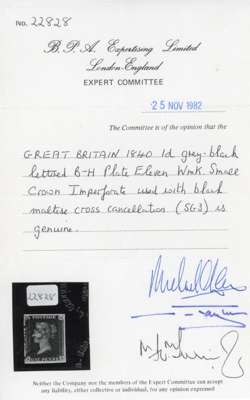 No. 22828
B. P. A. Expertising Limited
London-England
EXPERT COMMITTEE
25 NOV 1982
The Committee is of the opinion that the
GREAT BRITAIN 1840 1d grey-black
lettered B-H Plate Eleven Wmk. Small
Crown Imperforate used with black
maltese cross cancellation (SG3) is
genuine.
22828
POSTAGE
ONE PENNY
Neither the Company nor the members of the Expert Committee can accept
any liability, either collective or individual, for any opinion expressed